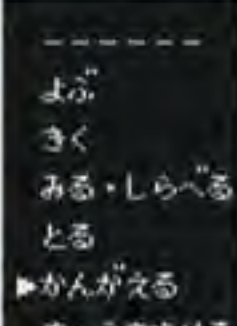 ------
よぶ
きく
みる・しらべる
とる
▶かんがえる